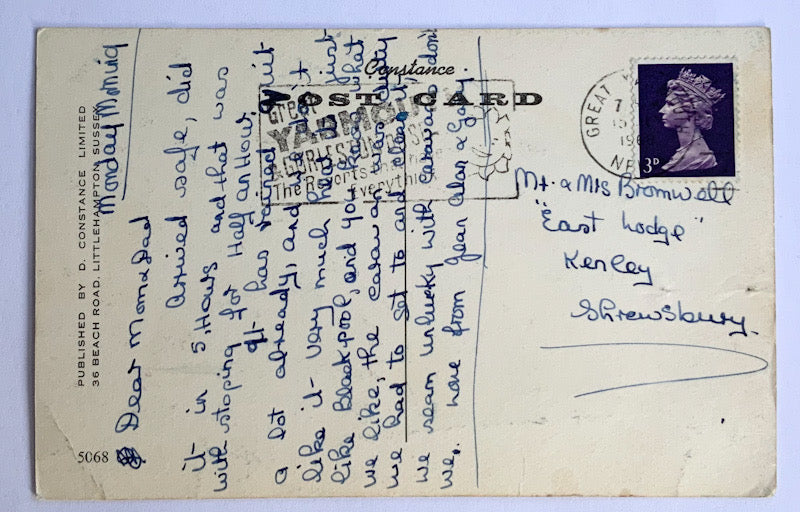 Constance
POST CARD
PUBLISHED BY D. CONSTANCE LIMITED
36 BEACH ROAD, LITTLEHAMPTON, SUSSEX
5068
GREAT
YARMOUTH
& GORLESTON-ON-SEA
The Resorts that have
Everything
GREAT
7
15
196
3D
Monday Morning
Dear Mom & Dad
Arrived safe, did
it in 5, Hours and that was
with stoping for Half an Hour
It has rained quit
a lot already, and we don't
like it very much here its just
like Blackpool, and you know what
we like, the caravan was dirty
we had to set to and clean it
we seam unlucky with caravans don't
we. love from Jean Alan & Gary
Mr. & Mrs Bromwell
"East Lodge"
Kenley
Shrewsbury.